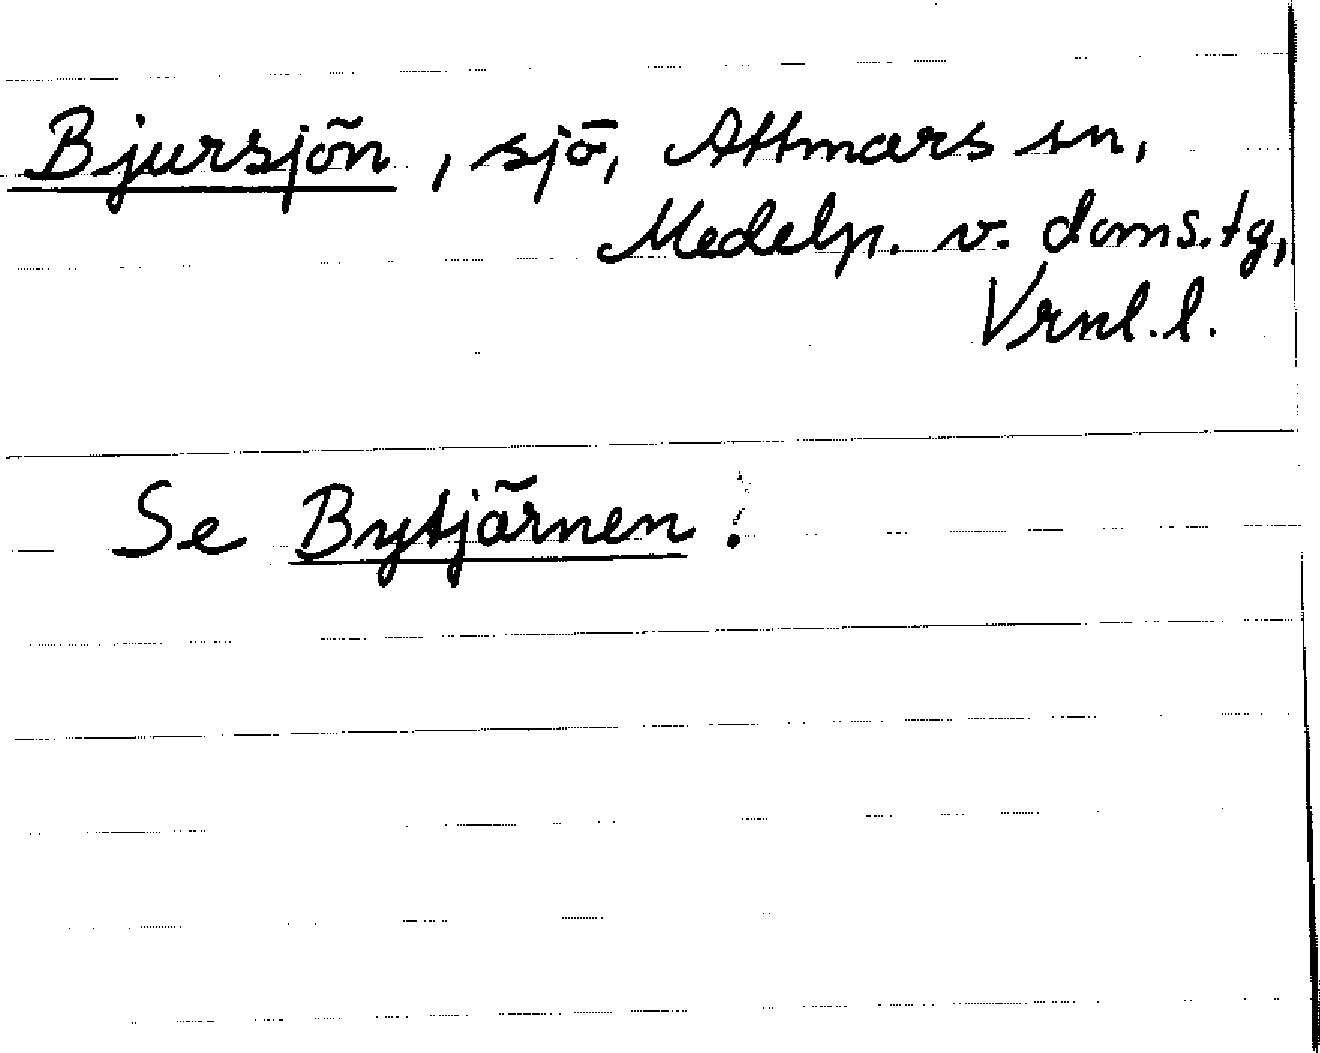 Bjursjön, sjö, Attmars sn,
Medelp. v. doms.tg,
Vrnl.l.
Se Bytjärnen!